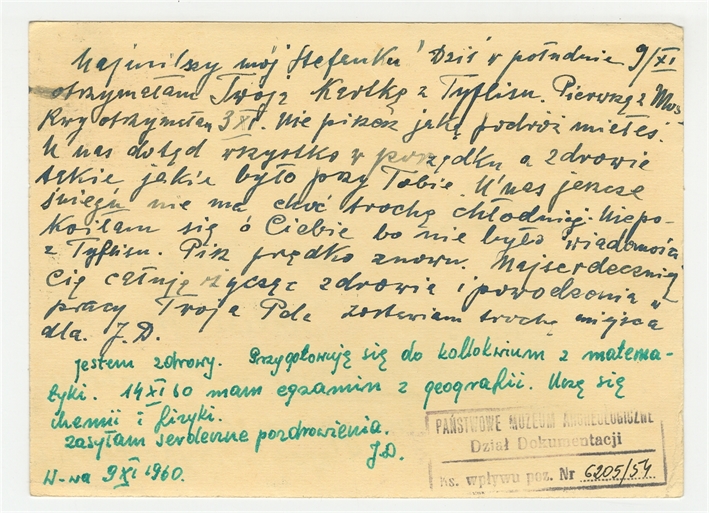 Najmilszy mój Stefanku! Dziś w południe 9/XI
otrzymałam Twoją Kartkę z Tyflisu. Pierwszą z Mos-
kwy otrzymałam 3 XI. Nie piszesz jaką podróż miałeś.
U nas dotąd wszystko w porządku a zdrowie
takie jakie było przy Tobie. U nas jeszcze
śniegu nie ma choć trochę chłodniej. Niepo-
koiłam się o Ciebie bo nie było wiadomości
z Tyflisu. Pisz prędko znowu. Najserdeczniej
Cię całuję życząc zdrowia i powodzenia w
pracy Twoja zostawiam trochę miejsca
dla. J.D.
Jestem zdrowy. Przygotowuję się do kollokwium z matema-
tyki. 14 XI 60 mam egzamin z geografii. Uczę się
chemii i fizyki.
Zasyłam serdeczne pozdrowienia.
J.D.
W-wa 9 XI 1960.
PAŃSTWOWE MUZEUM ARCHEOLOGICZNE
Dział Dokumentacji
Ks. wpływu poz. Nr 6205/54